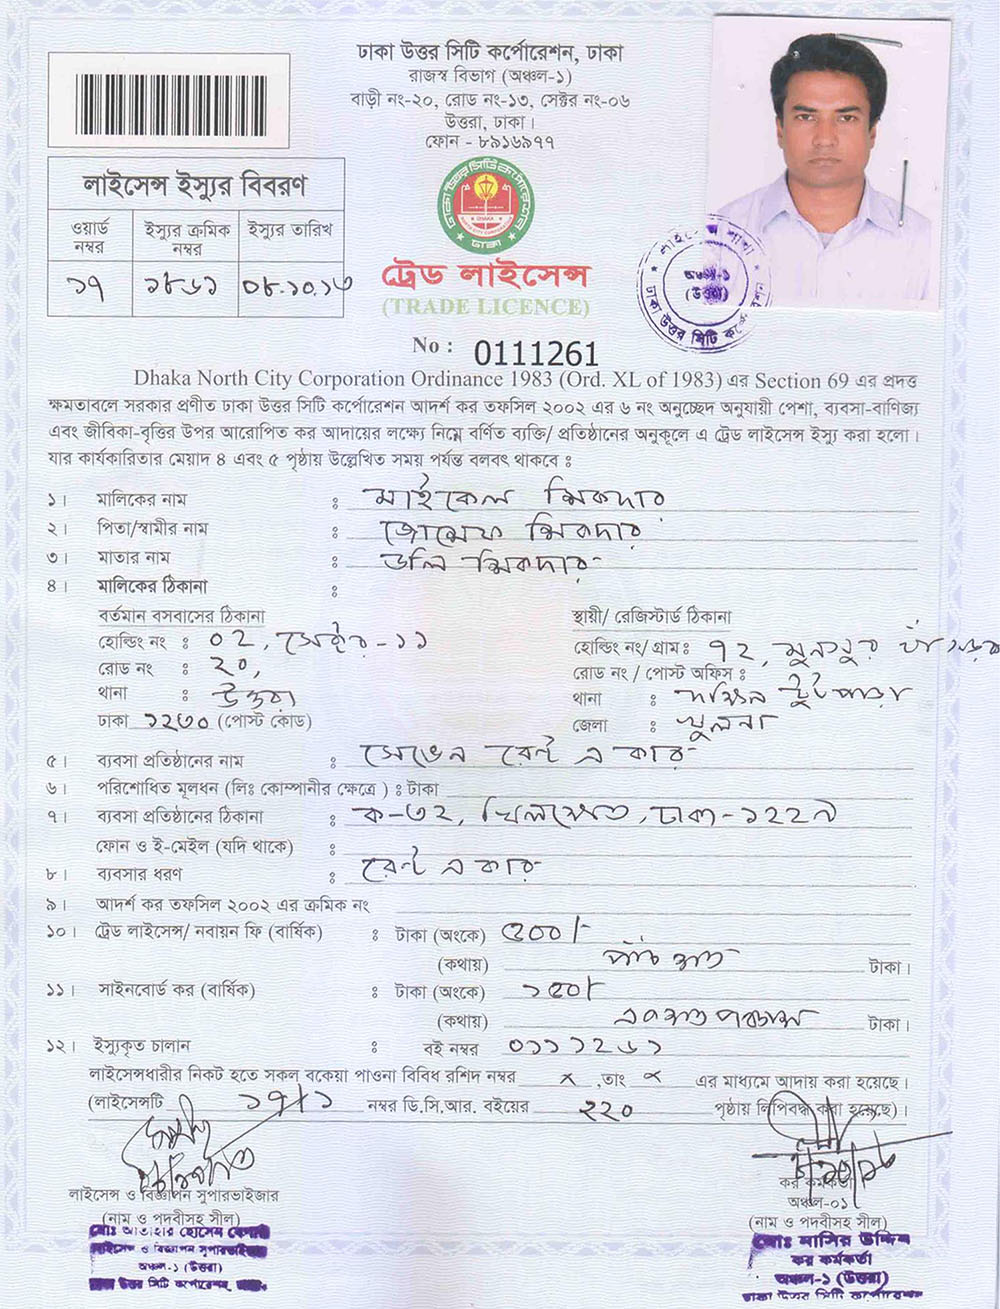 ঢাকা উত্তর সিটি কর্পোরেশন, ঢাকা
রাজস্ব বিভাগ (অঞ্চল-১)
বাড়ী নং-২০, রোড নং-১৩, সেক্টর নং-০৬
উত্তরা, ঢাকা।
ফোন - ৮৯১৬৯৭৭
লাইসেন্স ইস্যুর বিবরণ
ওয়ার্ড নম্বর ইস্যুর ক্রমিক নম্বর ইস্যুর তারিখ
১৭ ১৮৬১ ০৮.১০.১৩
ঢাকা উত্তর সিটি কর্পোরেশন
DHAKA NORTH CITY CORPORATION
ঢাকা
ট্রেড লাইসেন্স
(TRADE LICENCE)
লাইসেন্স শাখা
অঞ্চল-১
(উত্তরা)
ঢাকা উত্তর সিটি কর্পোরেশন
No : 0111261
Dhaka North City Corporation Ordinance 1983 (Ord. XL of 1983) এর Section 69 এর প্রদত্ত
ক্ষমতাবলে সরকার প্রণীত ঢাকা উত্তর সিটি কর্পোরেশন আদর্শ কর তফসিল ২০০২ এর ৬ নং অনুচ্ছেদ অনুযায়ী পেশা, ব্যবসা-বাণিজ্য
এবং জীবিকা-বৃত্তির উপর আরোপিত কর আদায়ের লক্ষ্যে নিম্নে বর্ণিত ব্যক্তি/ প্রতিষ্ঠানের অনুকূলে এ ট্রেড লাইসেন্স ইস্যু করা হলো।
যার কার্যকারিতার মেয়াদ ৪ এবং ৫ পৃষ্ঠায় উল্লেখিত সময় পর্যন্ত বলবৎ থাকবে ঃ
১। মালিকের নাম : মাইকেল শিকদার
২। পিতা/স্বামীর নাম : জোসেফ শিকদার
৩। মাতার নাম : ডলি শিকদার
৪। মালিকের ঠিকানা :
বর্তমান বসবাসের ঠিকানা
হোল্ডিং নং : ০২, সেক্টর-১১
রোড নং : ২০,
থানা : উত্তরা
ঢাকা ১২৩০ (পোস্ট কোড)
স্থায়ী/ রেজিস্টার্ড ঠিকানা
হোল্ডিং নং/ গ্রাম : ৭২,
রোড নং / পোস্ট অফিস :
থানা : দক্ষিন
জেলা : খুলনা
৫। ব্যবসা প্রতিষ্ঠানের নাম : সেভেন রেন্ট এ কার
৬। পরিশোধিত মূলধন (লিঃ কোম্পানীর ক্ষেত্রে ) : টাকা
৭। ব্যবসা প্রতিষ্ঠানের ঠিকানা : ক-৩২, খিলক্ষেত, ঢাকা-১২২৯
ফোন ও ই-মেইল (যদি থাকে) :
৮। ব্যবসার ধরণ : রেন্ট এ কার
৯। আদর্শ কর তফসিল ২০০২ এর ক্রমিক নং
১০। ট্রেড লাইসেন্স/ নবায়ন ফি (বার্ষিক) : টাকা (অংকে) ৫০০/-
(কথায়) পাঁচ শত টাকা।
১১। সাইনবোর্ড কর (বার্ষিক) : টাকা (অংকে) ১৫০/-
(কথায়) একশত পঞ্চাশ টাকা।
১২। ইস্যুকৃত চালান : বই নম্বর ০১১১২৬১
লাইসেন্সধারীর নিকট হতে সকল বকেয়া পাওনা বিবিধ রশিদ নম্বর × ,তাং × এর মাধ্যমে আদায় করা হয়েছে।
(লাইসেন্সটি ১৭/১ নম্বর ডি.সি.আর. বইয়ের ২২০ পৃষ্ঠায় লিপিবদ্ধ করা হয়েছে)।
লাইসেন্স ও বিজ্ঞাপন সুপারভাইজার
(নাম ও পদবীসহ সীল)
মোঃ আতাহার হোসেন
লাইসেন্স ও বিজ্ঞাপন সুপারভাইজার
অঞ্চল-১ (উত্তরা)
ঢাকা উত্তর সিটি কর্পোরেশন, ঢাকা
কর কর্মকর্তা
অঞ্চল-০১
(নাম ও পদবীসহ সীল)
মোঃ নাসির উদ্দিন
কর কর্মকর্তা
অঞ্চল-১ (উত্তরা)
ঢাকা উত্তর সিটি কর্পোরেশন